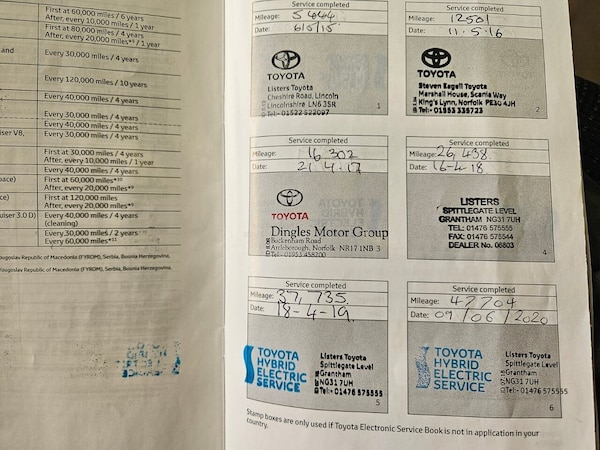 First at 60,000 miles / 6 years
After, every 10,000 miles / 1 year
First at 80,000 miles / 4 years
After, every 20,000 miles*⁹ / 1 year
and
Every 30,000 miles / 4 years
Every 120,000 miles / 10 years
Every 40,000 miles / 4 years
Every 30,000 miles / 4 years
Every 40,000 miles / 4 years
iser V8,
Every 30,000 miles / 4 years
First at 30,000 miles / 4 years
After, every 10,000 miles / 1 year
Every 40,000 miles / 4 years
pace)
First at 60,000 miles*¹⁰
After, every 20,000 miles*⁹
ce)
First at 120,000 miles
After, every 20,000 miles*⁹
ruiser 3.0 D)
Every 40,000 miles / 4 years
(cleaning)
Every 30,000 miles / 2 years
Every 60,000 miles*¹¹
ugoslav Republic of Macedonia (FYROM), Serbia, Bosnia Herzegovina.
ugoslav Republic of Macedonia (FYROM), Serbia, Bosnia Herzegovina.
Service completed
Mileage: 5444
Date: 6/5/15
TOYOTA
Listers Toyota
Cheshire Road, Lincoln
Lincolnshire LN6 3SR
Tel:- 01522
1
Service completed
Mileage: 12501
Date: 11.5.16
TOYOTA
Steven Eagell Toyota
Marshall House, Scania Way
King's Lynn, Norfolk PE30 4JH
Tel:- 01553
2
Service completed
Mileage: 16 302
Date: 21.4.17
TOYOTA
Dingles Motor Group
Buckenham Road
Attleborough, Norfolk NR17 1NB
Tel:- 01953
3
Service completed
Mileage: 26,438
Date: 16-4-18
LISTERS
SPITTLEGATE LEVEL
GRANTHAM NG31 7UH
TEL: 01476 575555
FAX: 01476 575544
DEALER No. 06803
4
Service completed
Mileage: 37,735
Date: 18-4-19
TOYOTA
HYBRID
ELECTRIC
SERVICE
Listers Toyota
Spittlegate Level
Grantham
NG31 7UH
Tel:- 01476 575555
5
Service completed
Mileage: 47704
Date: 09/06/2020
TOYOTA
HYBRID
ELECTRIC
SERVICE
Listers Toyota
Spittlegate Level
Grantham
NG31 7UH
Tel:- 01476 575555
6
Stamp boxes are only used if Toyota Electronic Service Book is not in application in your
country.